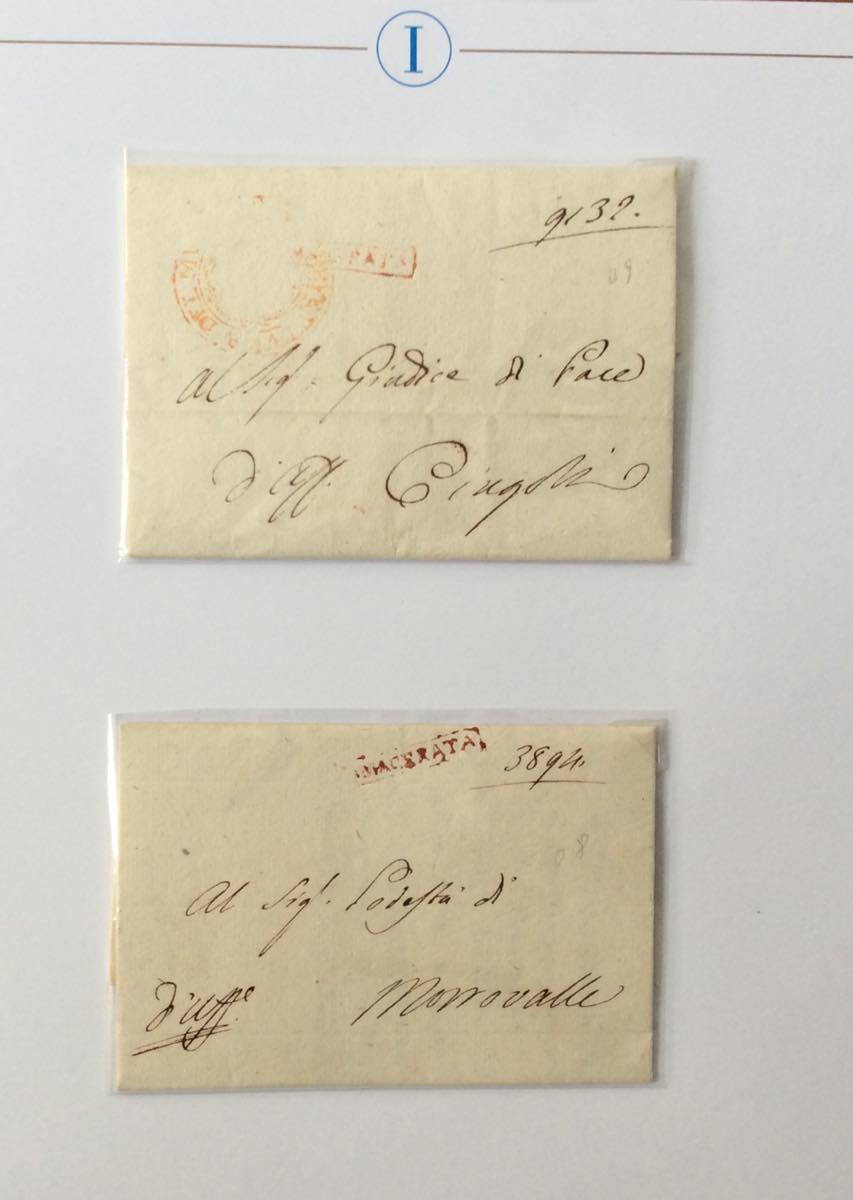 I
9132.
09
Al Sig.r Giudice di Pace
d'Uff. Cingoli
MACERATA
3894.
08
Al Sig.r Podestà di
d'Uff.o Morrovalle